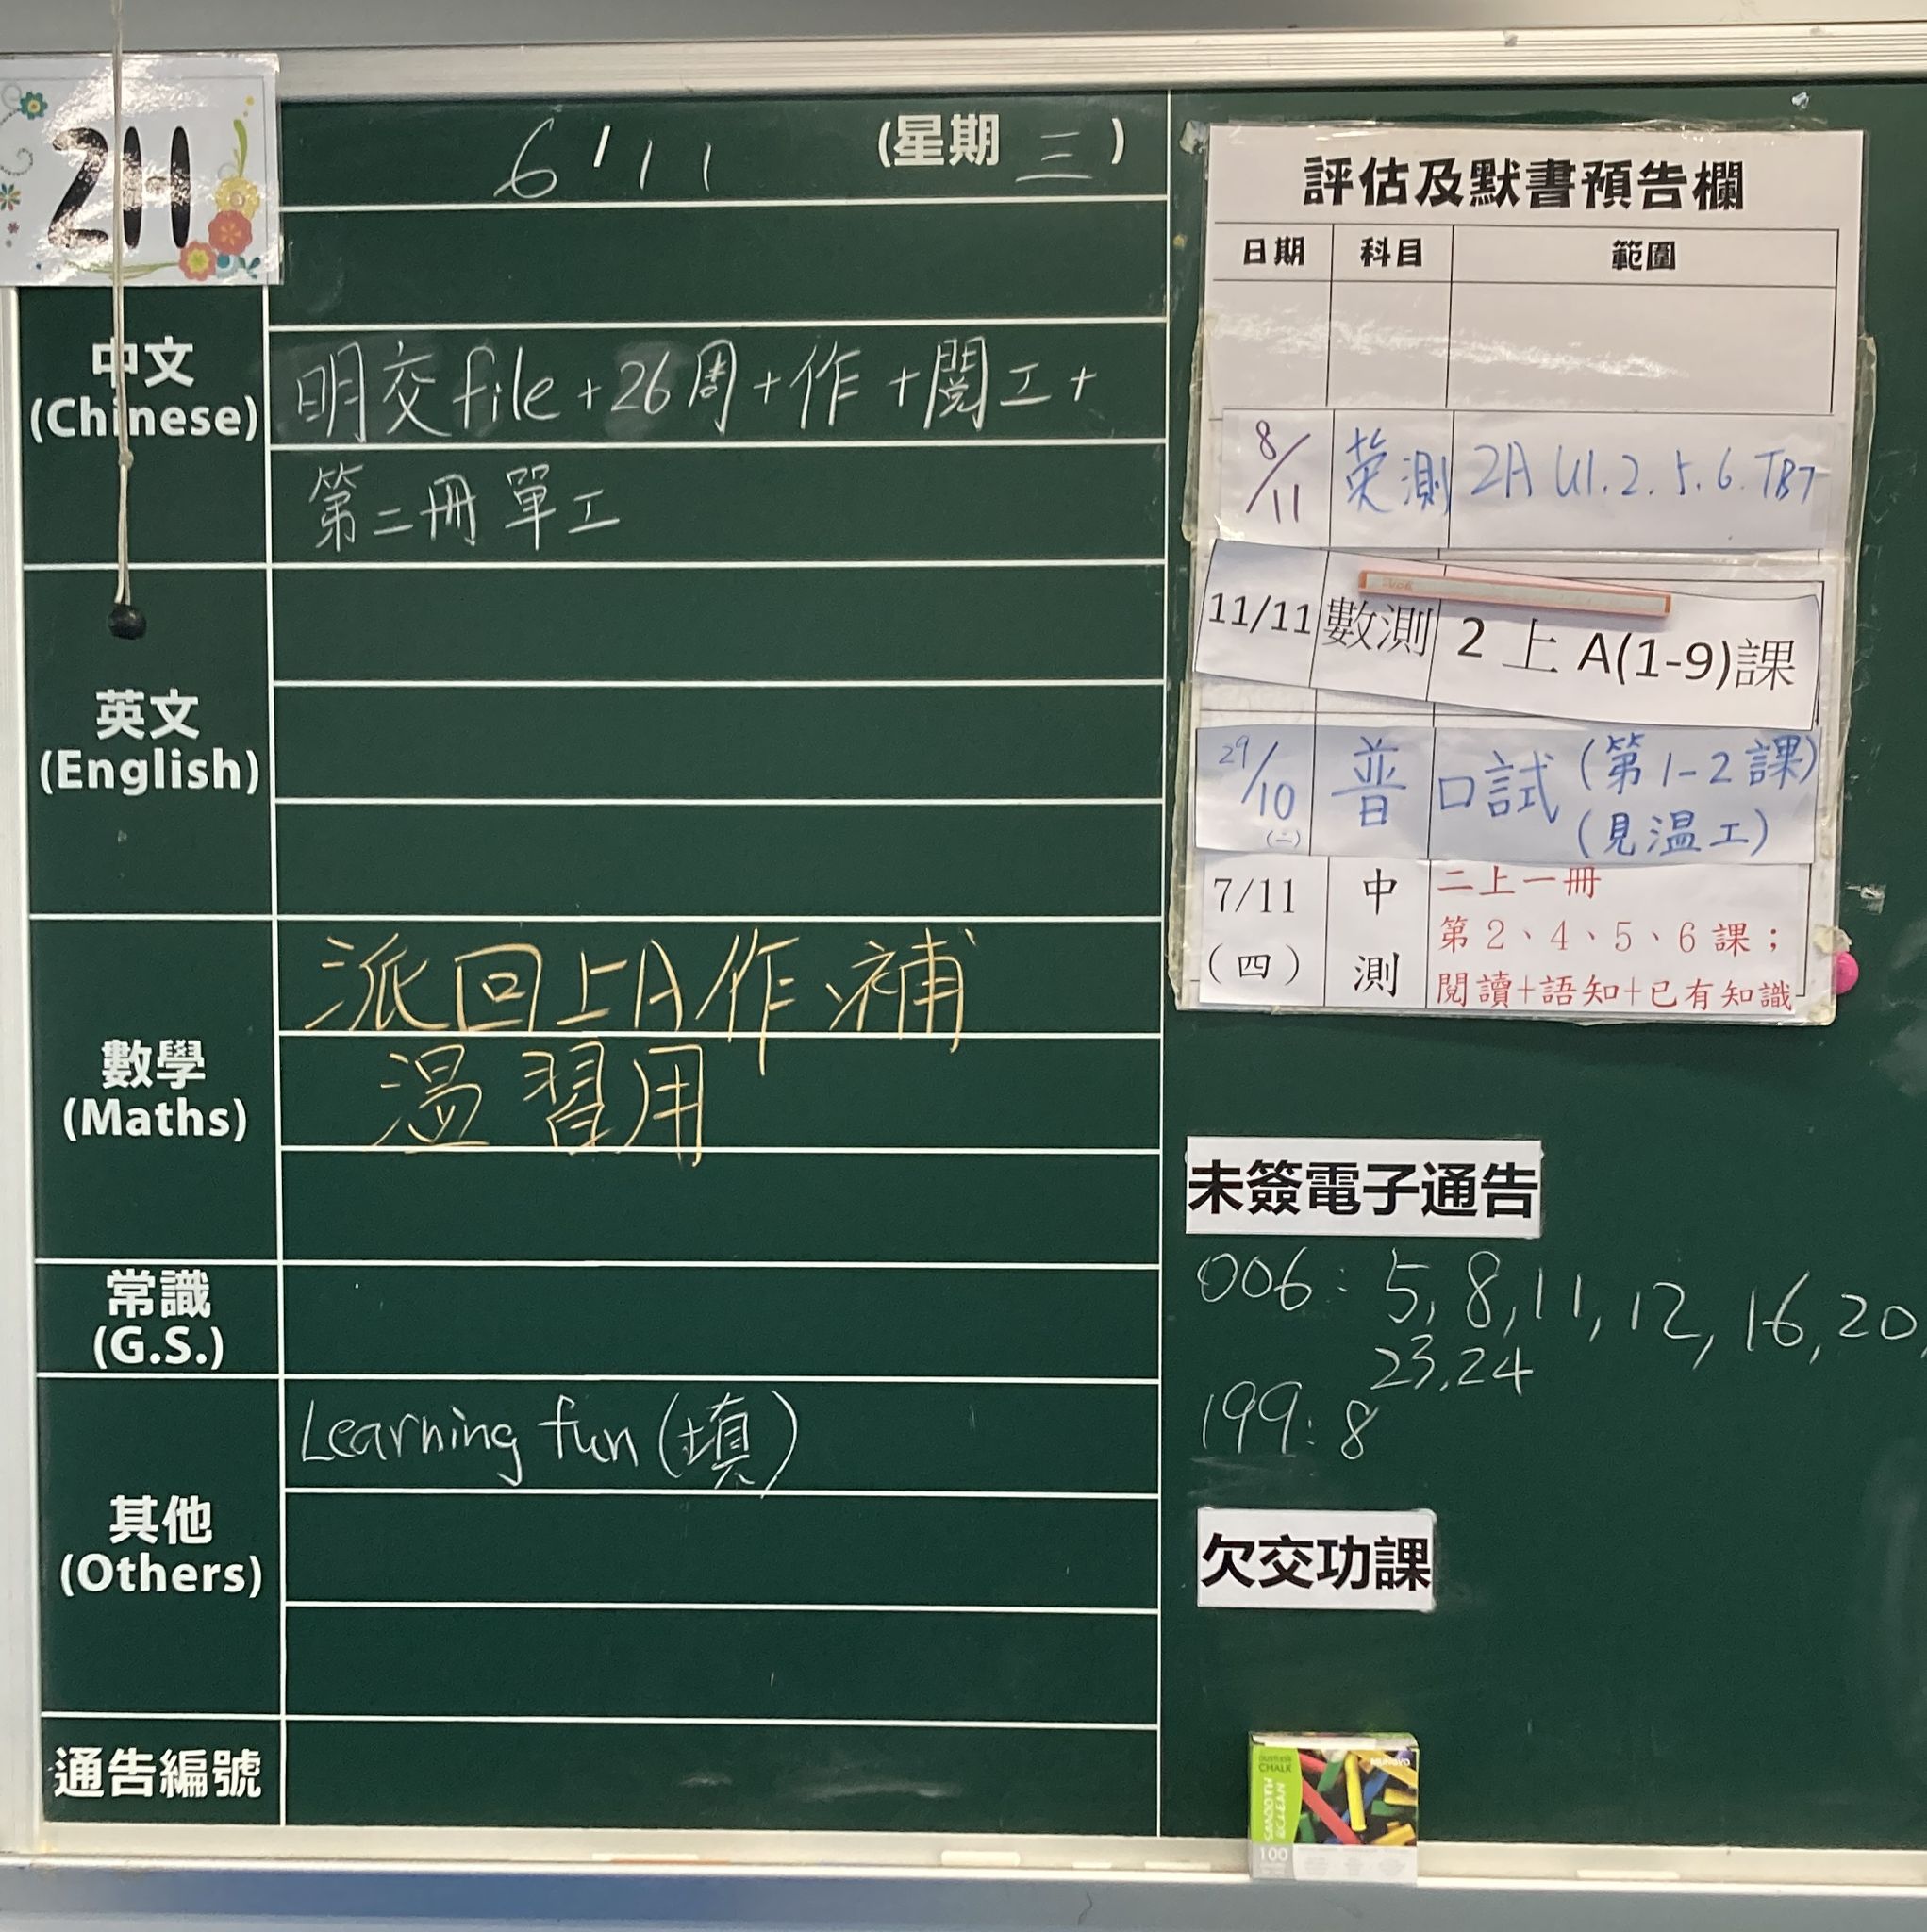 2H
6/11 (星期 三)
中文
(Chinese)
明交 file + 26周 + 作 + 閱工 +
第二冊單工
英文
(English)
數學
(Maths)
派回上A作、補
溫習用
常識
(G.S.)
其他
(Others)
Learning fun (填)
通告編號
評估及默書預告欄
日期 科目 範圍
8/11 英測 2A U1.2.5.6. TB7
11/11 數測 2 上 A(1-9)課
29/10 (二) 普 口試 (第1-2課)
(見溫工)
7/11 (四) 中測 二上一冊
第2、4、5、6課；
閱讀+語知+已有知識
未簽電子通告
006: 5, 8, 11, 12, 16, 20,
23, 24
199: 8
欠交功課
DUSTLESS
CHALK
SMOOTH
&CLEAN
MUNGYO
100